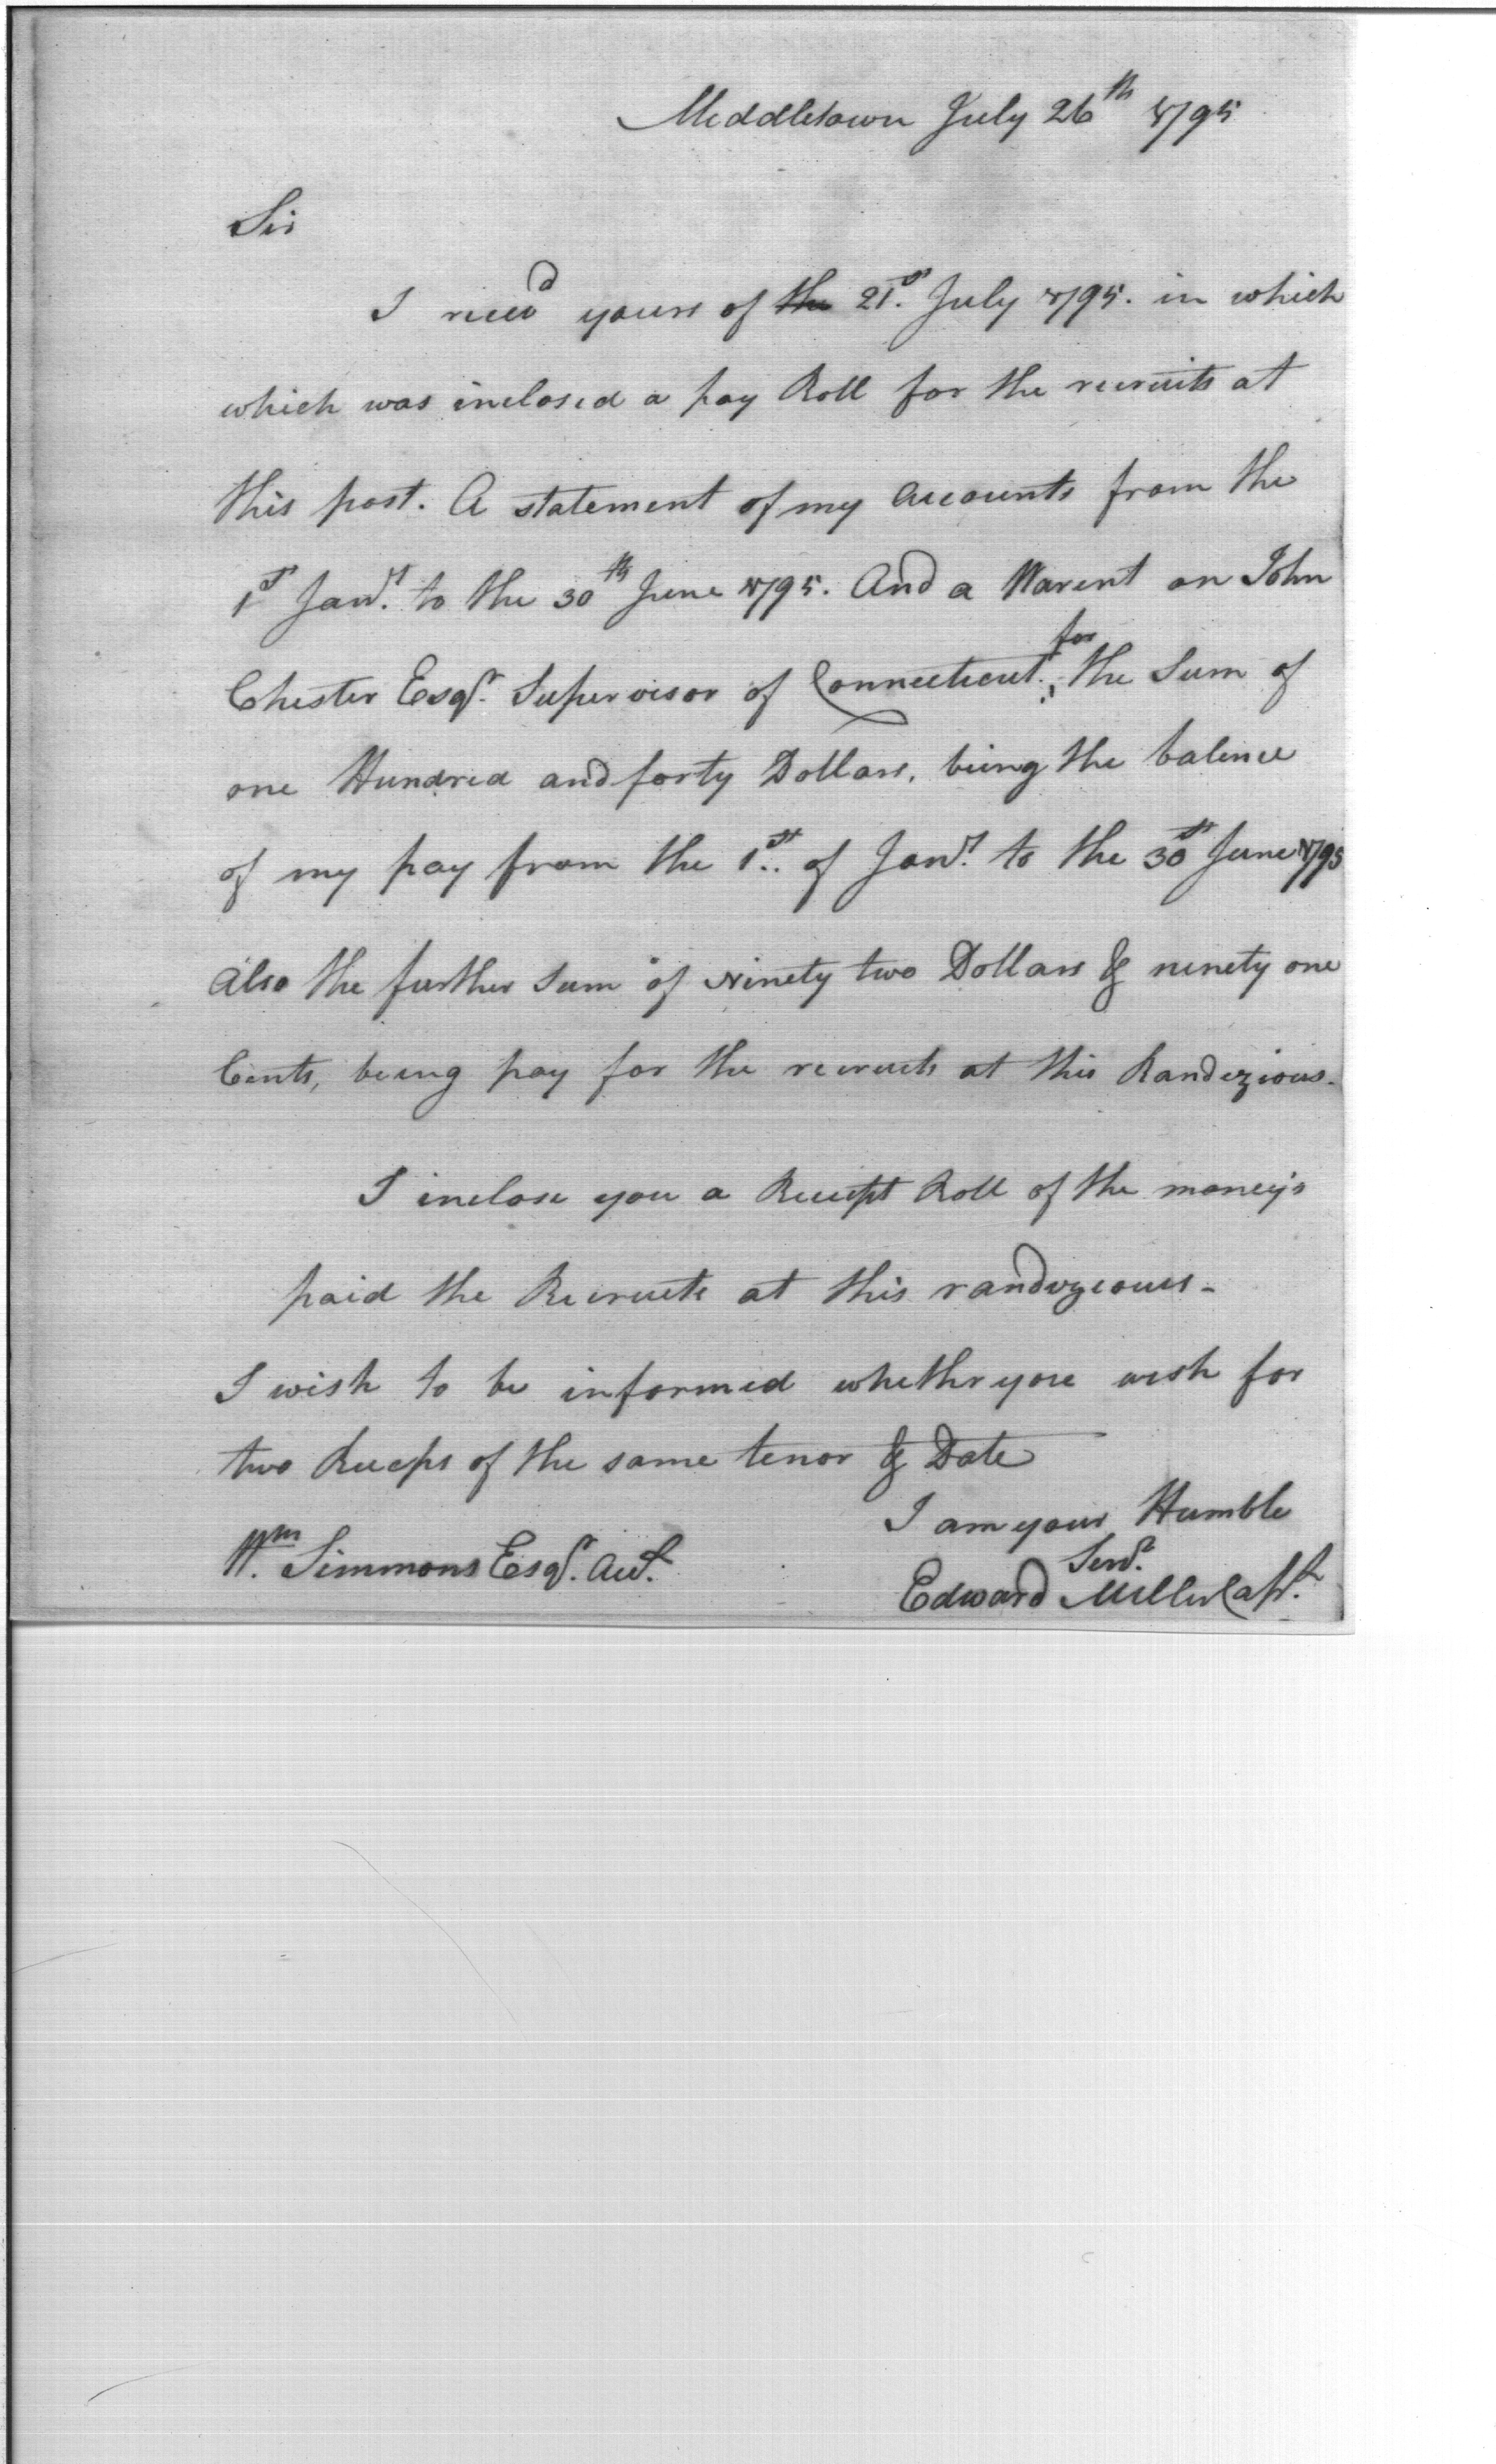 Middletown July 26th 1795
Sir
I rece'd yours of the 21st July 1795. in which
which was inclosed a pay Roll for the recruits at
this post. A statement of my Accounts from the
1st Jany. to the 30th June 1795. And a Warent on John
Chester Esqr. Supervisor of Connecticut, for the Sum of
one Hundred and forty Dollars, being the balence
of my pay from the 1st. of Jany. to the 30th June 1795
Also the further Sum of Ninety two Dollars & ninety one
Cents, being pay for the recruits at this Randezious.
I inclose you a Receipt Roll of the money's
paid the Recruits at this randezious-
I wish to be informed whethr you wish for
two Receps of the same tenor & Date
I am your Humble
Servt.
Wm. Simmons Esqr. Act.
Edward Miller Capt.